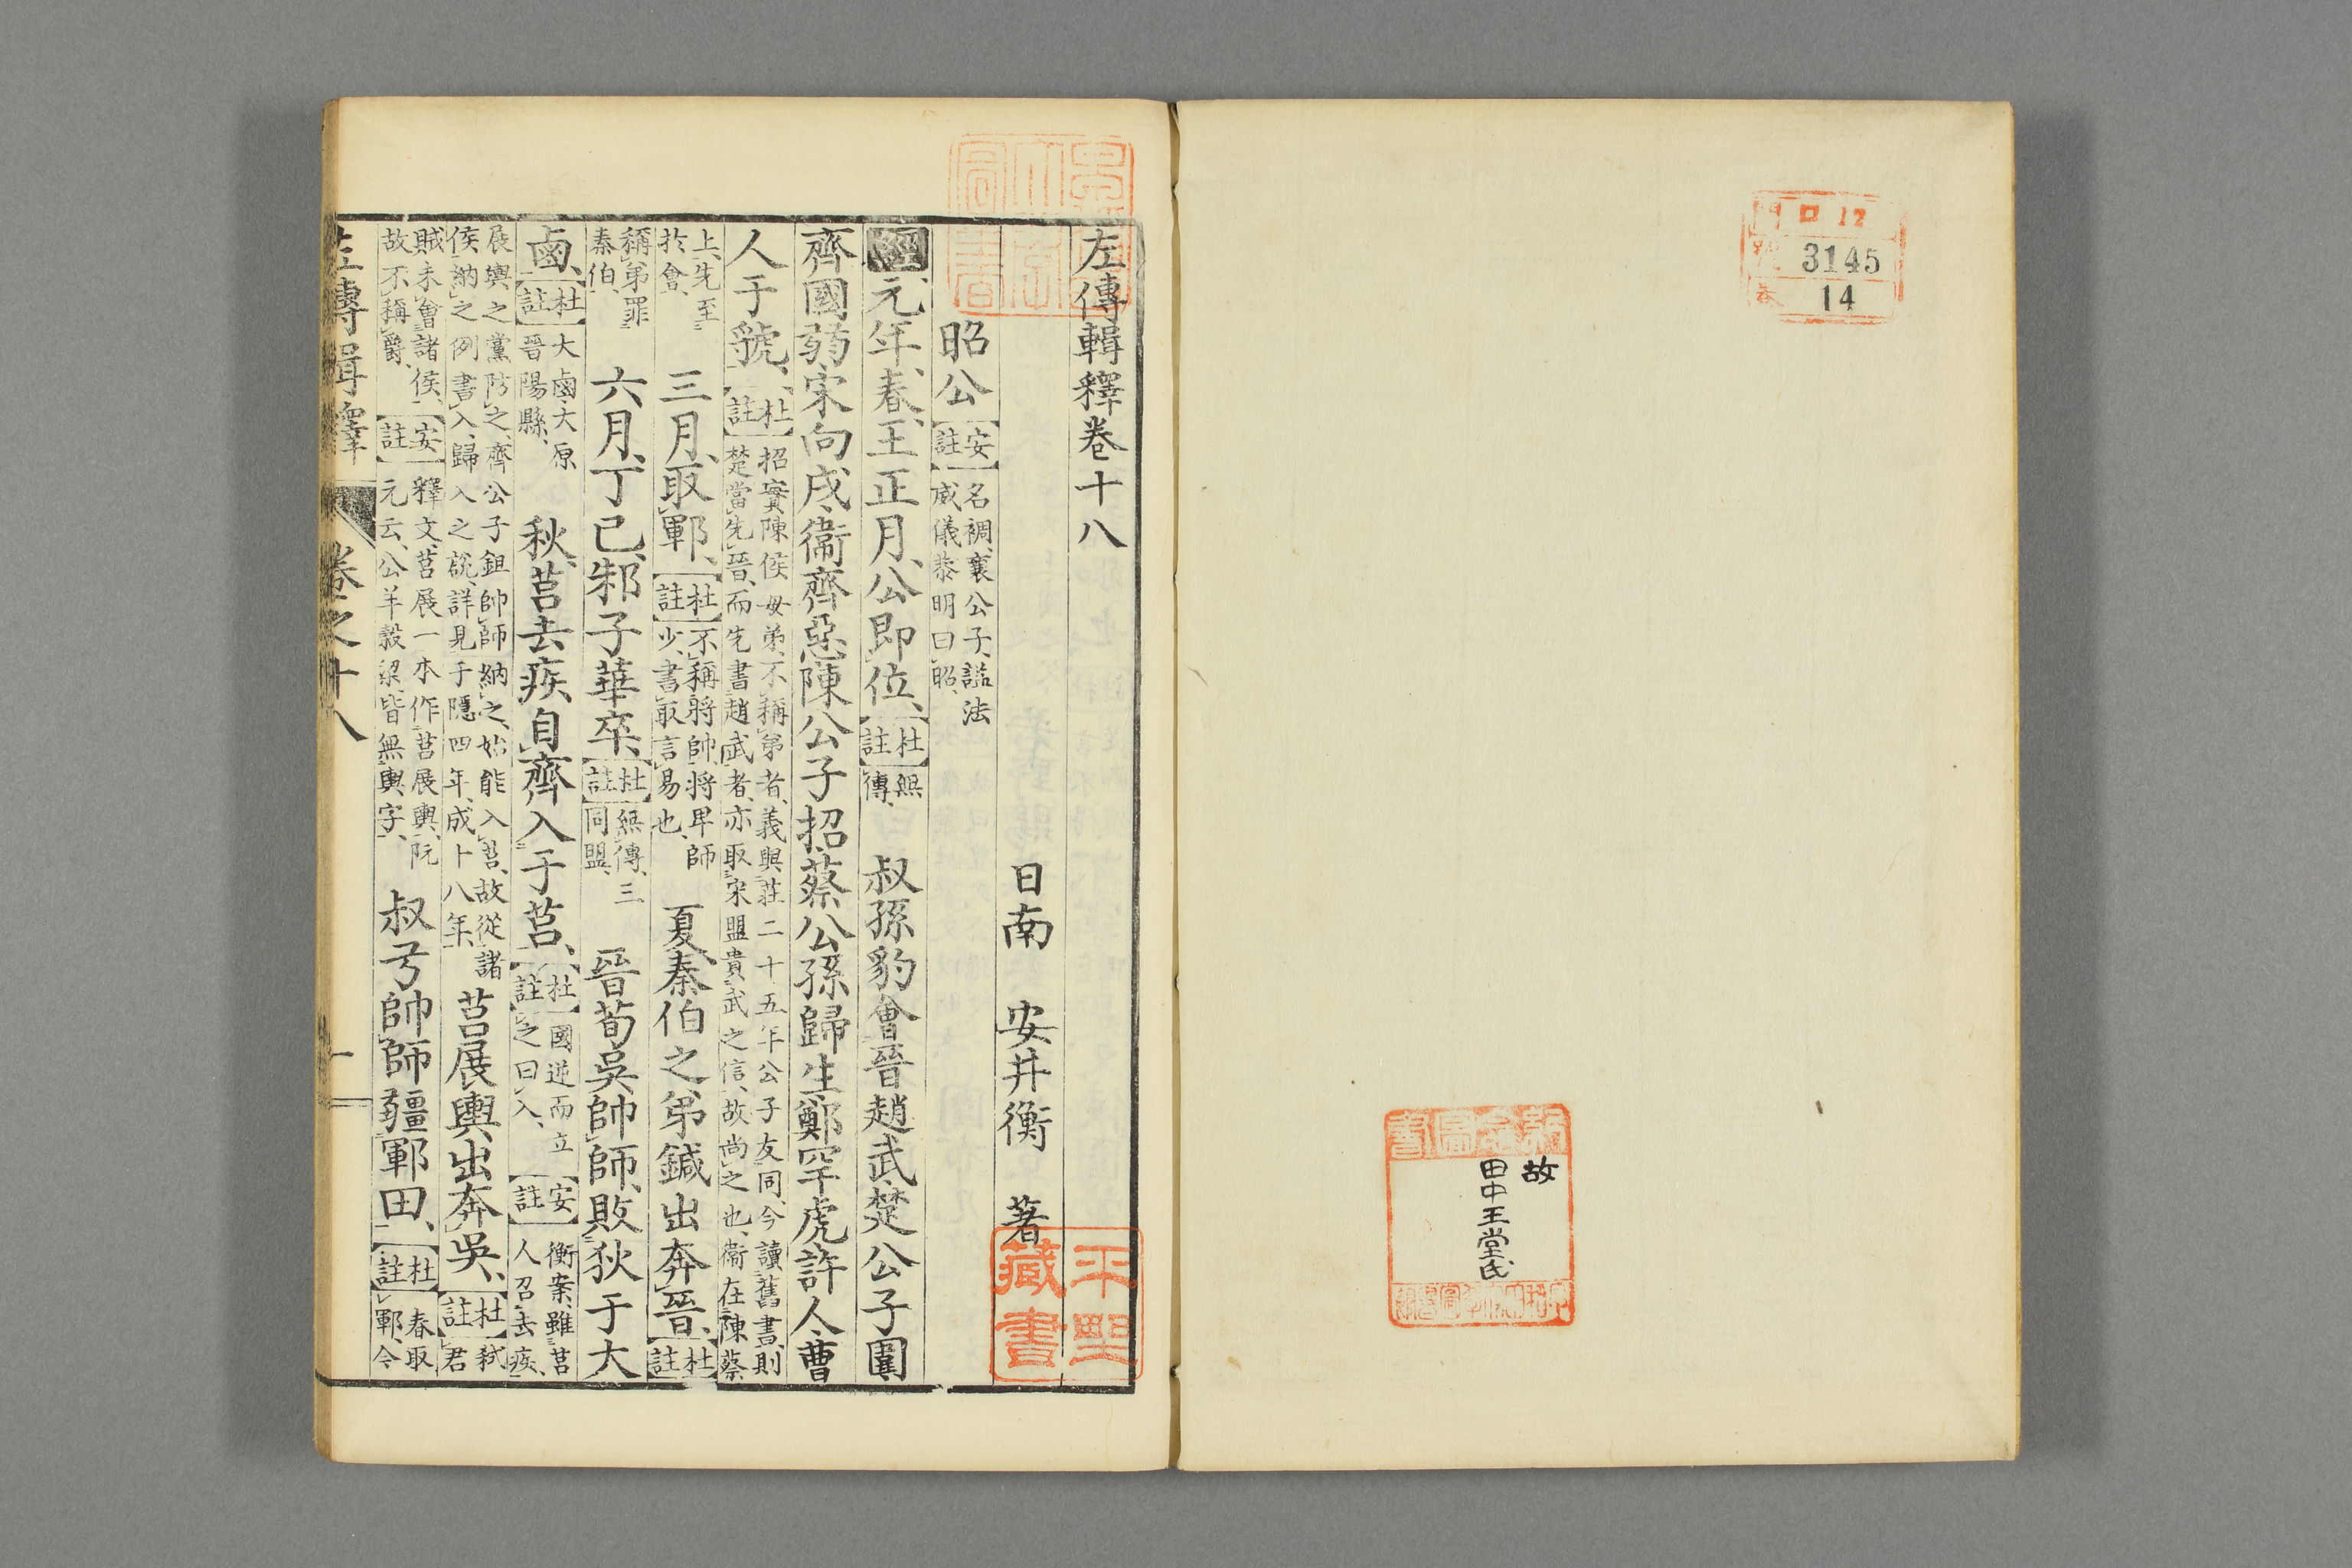 門 ロ12
號 3145
卷 14
故
田中王堂氏
左傳輯釋卷十八
日南 安井衡 著
昭公【安註】名裯、襄公子、謚法威儀恭明曰昭、
經元年、春、王正月、公即位、【杜註】無傳、叔孫豹會晉趙武楚公子圍
齊國弱宋向戌衞齊惡陳公子招蔡公孫歸生鄭罕虎許人曹
人于虢、【杜註】招實陳侯母弟、不稱弟者、義與莊二十五年公子友同、今讀舊書、則楚當先晉、而先書趙武者、亦取宋盟貴武之信、故尚之也、衞在陳蔡
上、先至於會、三月、取鄆、【杜註】不稱將帥、將卑師少、書取言易也、夏、秦伯之弟鍼出奔晉、【杜註】
稱弟罪秦伯、六月、丁巳、邾子華卒、【杜註】無傳、三同盟、晉荀吳帥師、敗狄于大
鹵、【杜註】大鹵、大原晉陽縣、秋、莒去疾自齊入于莒、【杜註】國逆而立之曰入、【安註】衡案、雖莒人召去疾、
展輿之黨防之、齊公子鉏帥師納之、始能入莒、故從諸侯納之例書入、歸入之說、詳見于隱四年、成十八年、莒展輿出奔吳、【杜註】弑君
賊、未會諸侯、故不稱爵、【安註】釋文、莒展一本作莒展輿、阮元云、公羊穀梁、皆無輿字、叔弓帥師疆鄆田、【杜註】春取鄆、今
左傳輯釋 卷之十八 一
平野藏書